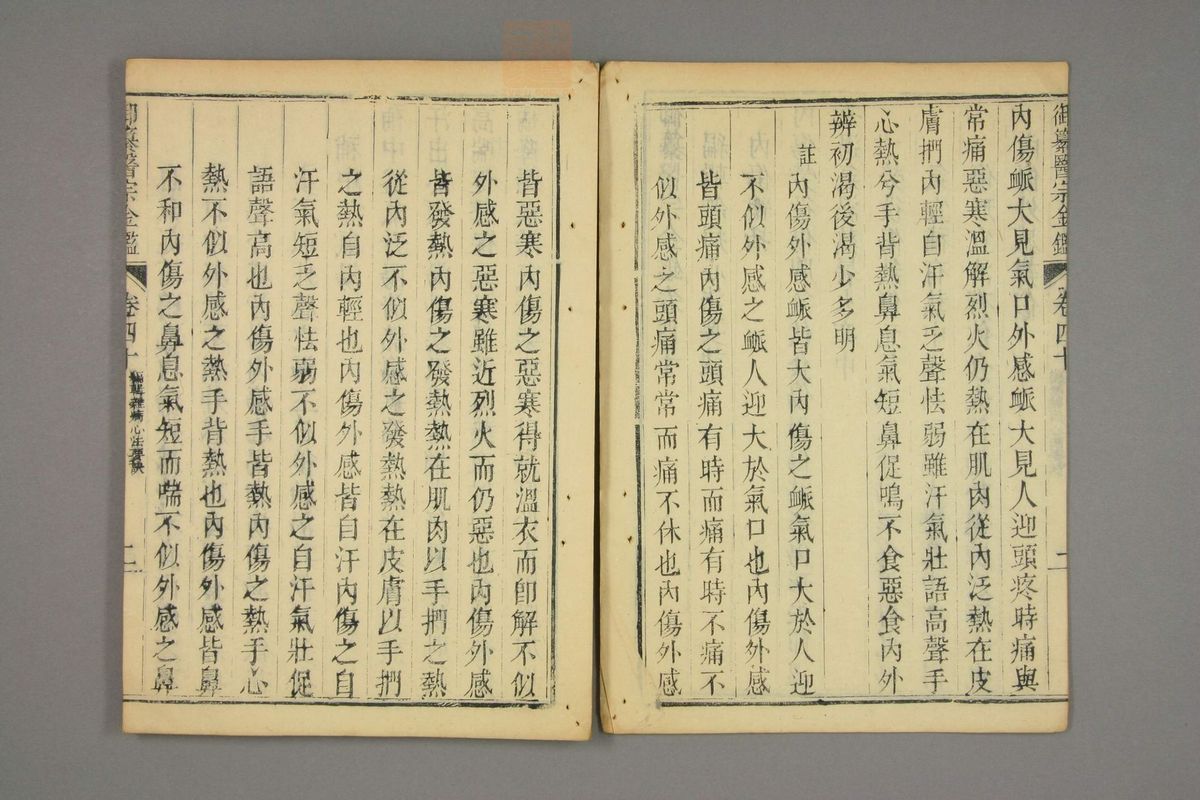 御纂醫宗金鑑 卷四十 二
內傷䘑大見氣口外感䘑大見人迎頭疼時痛與
常痛惡寒溫解烈火仍熱在肌肉從內泛熱在皮
膚捫內輕自汗氣乏聲怯弱雖汗氣壯語高聲手
心熱兮手背熱鼻息氣短鼻促鳴不食惡食內外
辨初渴後渴少多明
註內傷外感䘑皆大內傷之䘑氣口大於人迎
不似外感之䘑人迎大於氣口也內傷外感
皆頭痛內傷之頭痛有時而痛有時不痛不
似外感之頭痛常常而痛不休也內傷外感
皆惡寒內傷之惡寒得就溫衣而卽解不似
外感之惡寒雖近烈火而仍惡也內傷外感
皆發熱內傷之發熱熱在肌肉以手捫之熱
從內泛不似外感之發熱熱在皮膚以手捫
之熱自內輕也內傷外感皆自汗內傷之自
汗氣短乏聲怯弱不似外感之自汗氣壯促
語聲高也內傷外感手皆熱內傷之熱手心
熱不似外感之熱手背熱也內傷外感皆鼻
不和內傷之鼻息氣短而喘不似外感之鼻
御纂醫宗金鑑 卷四十 編輯雜病心法要訣 二